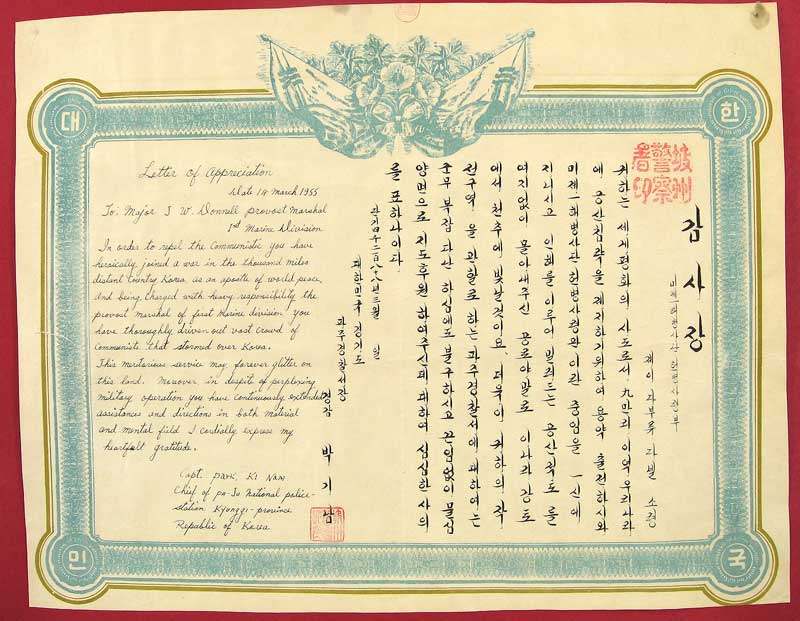 대
한
민
국
Letter of Appreciation
Date 14 March 1955
To: Major J W. Donnell provost marshal
1st Marine Division
In order to repel the Communistic you have
heroically joined a war in the thousand miles
distant country Korea. as an apostle of world peace,
and being charged with heavy responsibility the
provost marshal of first Marine division you
have thoroughly driven out vast crowd of
Communists that stormed over Korea.
This meritorious service may forever glitter on
this land. Moreover in despite of perplexing
military operation you have continuously extended
assistances and directions in both material
and mental field I cordially express my
heartfelt gratitude.
Capt. park, Ki Nam
Chief of pa-Ju national police-
station Kyonggi-province
Republic of Korea
坡州
警察
署印
감사장
미제一해병사단 헌병사령부
제이 따부류 다넬 소령
귀하는 세계평화의 사도로서 九만리 이역 우리나라
에 공산침략을 제지하기위하여 용약 출전하시와
미제一해병사단 헌병사령관 이란 중임을 一신에
지니시고 인해를 이루어 밀려드는 공산적도를
여지없이 몰아내주신 공로야말로 이나라 강토
에서 천추에 빛날것이요 더욱이 귀하의 작
전구역을 관할로 하는 파주경찰서에 대하여는
군무 다난 하심에도 불구하시고 끈임없이 물심
양면으로 지도후원 하여주신데 대하여 심심한 사의
를 표하나이다.
단기四千二百八十八년三월 일
대한민국 경기도
파주경찰서장
경감 박기남